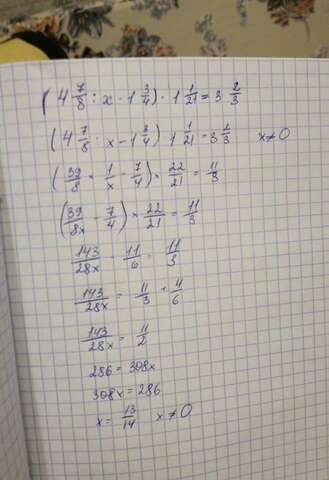 (4 7/8 : x - 1 3/4) · 1 1/21 = 3 2/3
(4 7/8 : x - 1 3/4) 1 1/21 = 3 2/3 x≠0
(39/8 × 1/x - 7/4) × 22/21 = 11/3
(39/8x - 7/4) × 22/21 = 11/3
143/28x - 11/6 = 11/3
143/28x = 11/3 + 11/6
143/28x = 11/2
286 = 308x
308x = 286
x = 13/14 x≠0